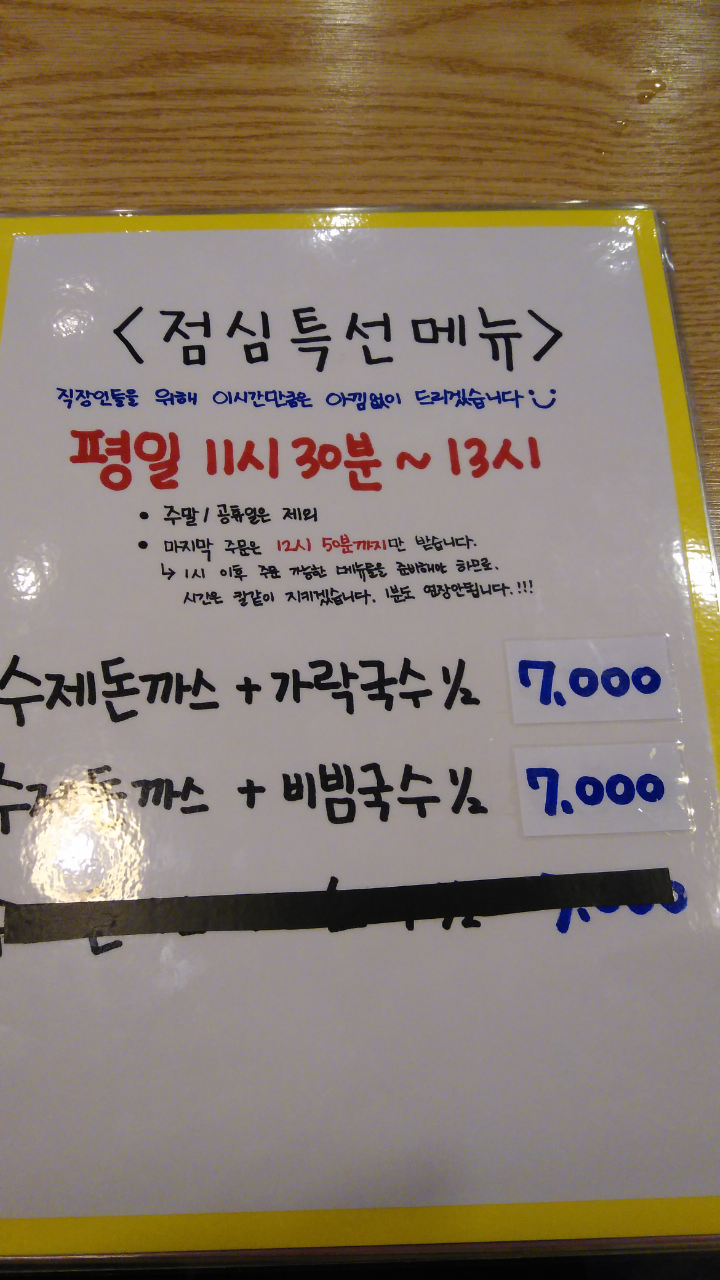 <점심특선메뉴>
직장인들을 위해 이시간만큼은 아낌없이 드리겠습니다
평일 11시 30분 ~ 13시
• 주말/공휴일은 제외
• 마지막 주문은 12시 50분까지만 받습니다.
↳ 1시 이후 주문 가능한 메뉴들을 준비해야 하므로.
시간은 칼같이 지키겠습니다. 1분도 연장안됩니다.!!!
수제돈까스 + 가락국수 1/2 7,000
수제돈까스 + 비빔국수 1/2 7,000
1/2 7,000